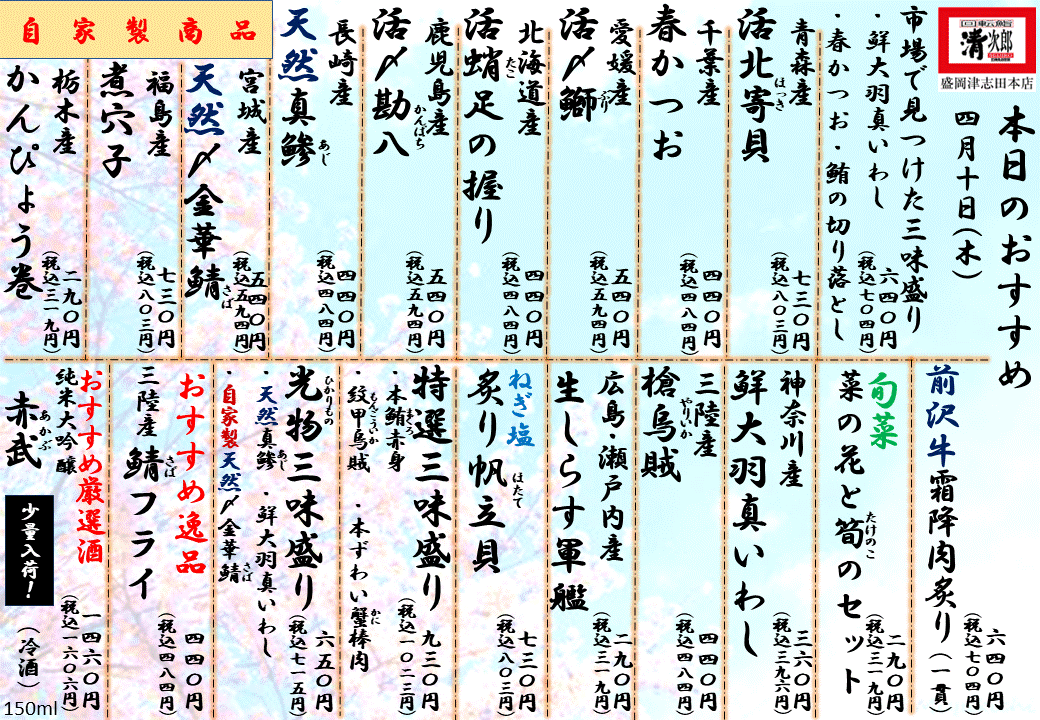 回転鮨
清次郎
盛岡津志田本店
本日のおすすめ
四月十日(木)
市場で見つけた三味盛り
・鮮大羽真いわし
・春かつお・鮪の切り落とし
六四〇円
(税込七〇四円)
青森産
活北寄貝
ほっき
七三〇円
(税込八〇三円)
千葉産
春かつお
四四〇円
(税込四八四円)
愛媛産
活〆鰤
ぶり
五四〇円
(税込五九四円)
北海道産
活蛸足の握り
たこ
四四〇円
(税込四八四円)
鹿児島産
活〆勘八
かんぱち
五四〇円
(税込五九四円)
長崎産
天然真鯵
あじ
四四〇円
(税込四八四円)
自家製商品
宮城産
天然〆金華鯖
さば
五四〇円
(税込五九四円)
福島産
煮穴子
七三〇円
(税込八〇三円)
栃木産
かんぴょう巻
二九〇円
(税込三一九円)
前沢牛霜降肉炙り(一貫)
六四〇円
(税込七〇四円)
旬菜
菜の花と筍のセット
たけのこ
二九〇円
(税込三一九円)
神奈川産
鮮大羽真いわし
三六〇円
(税込三九六円)
三陸産
槍烏賊
やりいか
四四〇円
(税込四八四円)
広島・瀬戸内産
生しらす軍艦
二九〇円
(税込三一九円)
ねぎ塩
炙り帆立貝
ほたて
七三〇円
(税込八〇三円)
特選三味盛り
・本鮪赤身
まぐろ
・紋甲烏賊
もんごういか
・本ずわい蟹棒肉
かに
九三〇円
(税込一〇二三円)
光物三味盛り
ひかりもの
・天然真鯵
あじ
・鮮大羽真いわし
・自家製天然〆金華鯖
さば
六五〇円
(税込七一五円)
おすすめ逸品
三陸産
鯖フライ
さば
四四〇円
(税込四八四円)
おすすめ厳選酒
純米大吟醸
赤武
あかぶ
少量入荷！
(冷酒)
一四六〇円
(税込一六〇六円)
150ml